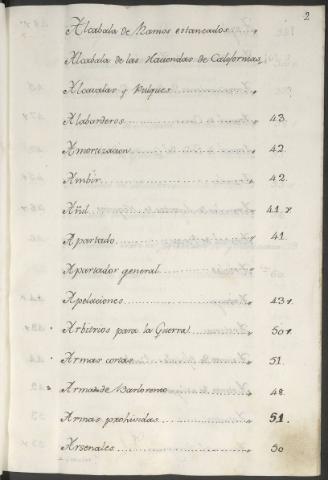 2
Alcabala de Ramos estancados
Alcabala de las Haciendas de Californias
Alcavalas y Pulques
Alabarderos 43.
Amortizacion 42.
Ambar 42.
Añil 41. v.
Apartado 41.
Apartador general
Apelaciones 43 v.
Arbitrios para la Guerra 50 v.
Armas cortas 51.
Armas de Barlovento 48.
Armas prohividas 51.
Arsenales 50